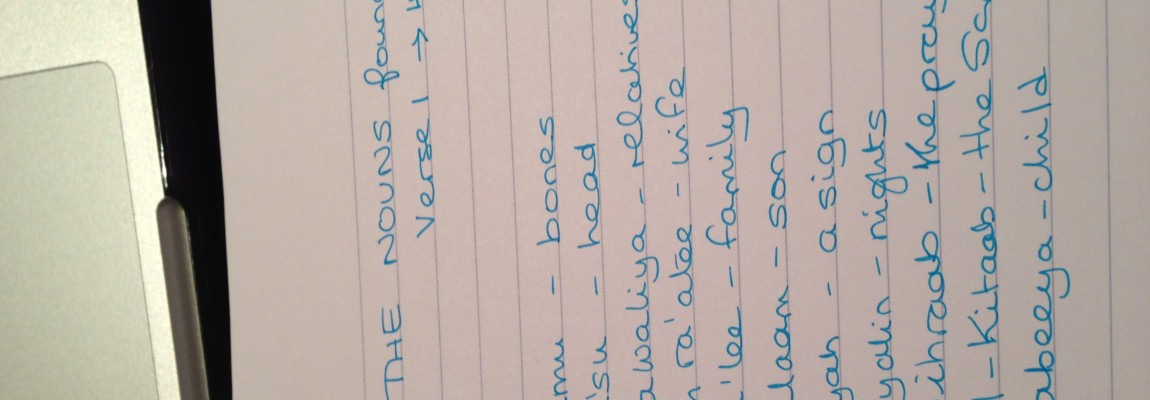 THE NOUNS foun
Verse 1 →
mu - bones
'su - head
awaliya - relatives
ra'atee - wife
'lee - family
laam - son
yah - a sign
yalin - nights
ihraab - the pray
l - Kitaab - the Sc
abeeya - child